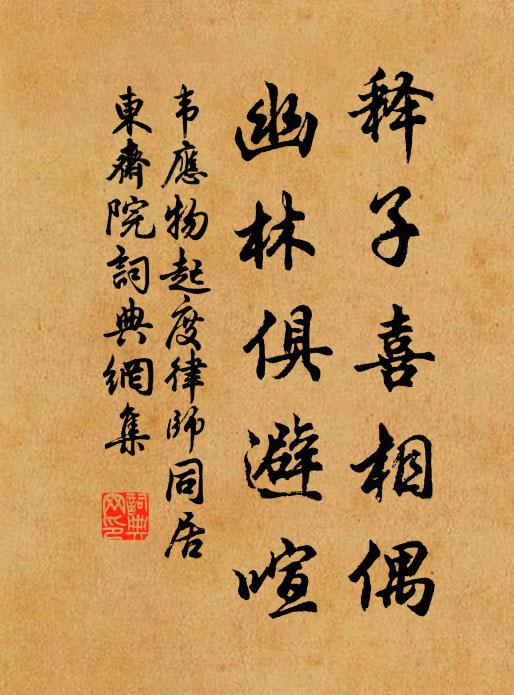 释子喜相偶
幽林俱避喧
韦應物起度律師同居
東齋院詞典網集
詞典网印